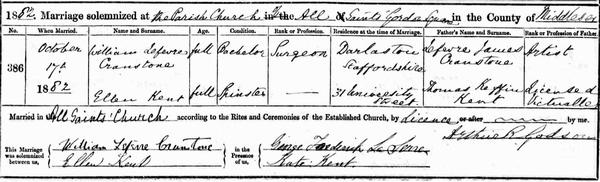 1882. Marriage solemnized at the Parish Church of the All Saints' Gordon Square in the County of Middlesex
No. When Married. Name and Surname. Age. Condition. Rank or Profession. Residence at the time of Marriage. Father's Name and Surname. Rank or Profession of Father.
386 October 17th 1882 William Lefevre Cranstone full Bachelor Surgeon Darlaston Staffordshire Lefevre James Cranstone Artist
Ellen Kent full Spinster — 31 University Street Thomas Kent Licensed Victualler
Married in All Saints' Church according to the Rites and Ceremonies of the Established Church, by Licence or after — by me,
Arthur R. Godson
This Marriage was solemnized between us, William Lefevre Cranstone Ellen Kent in the Presence of us, George Frederick La Serre Kate Kent.